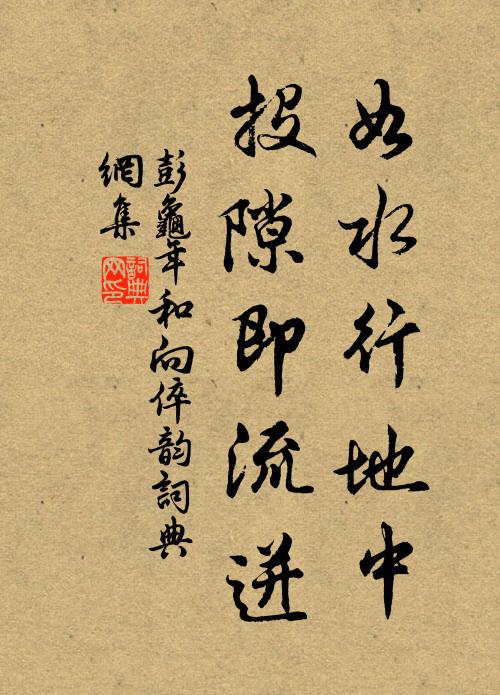 如水行地中
投隙即流迸
彭龜年和向倅韵詞典
網集
詞典
网印